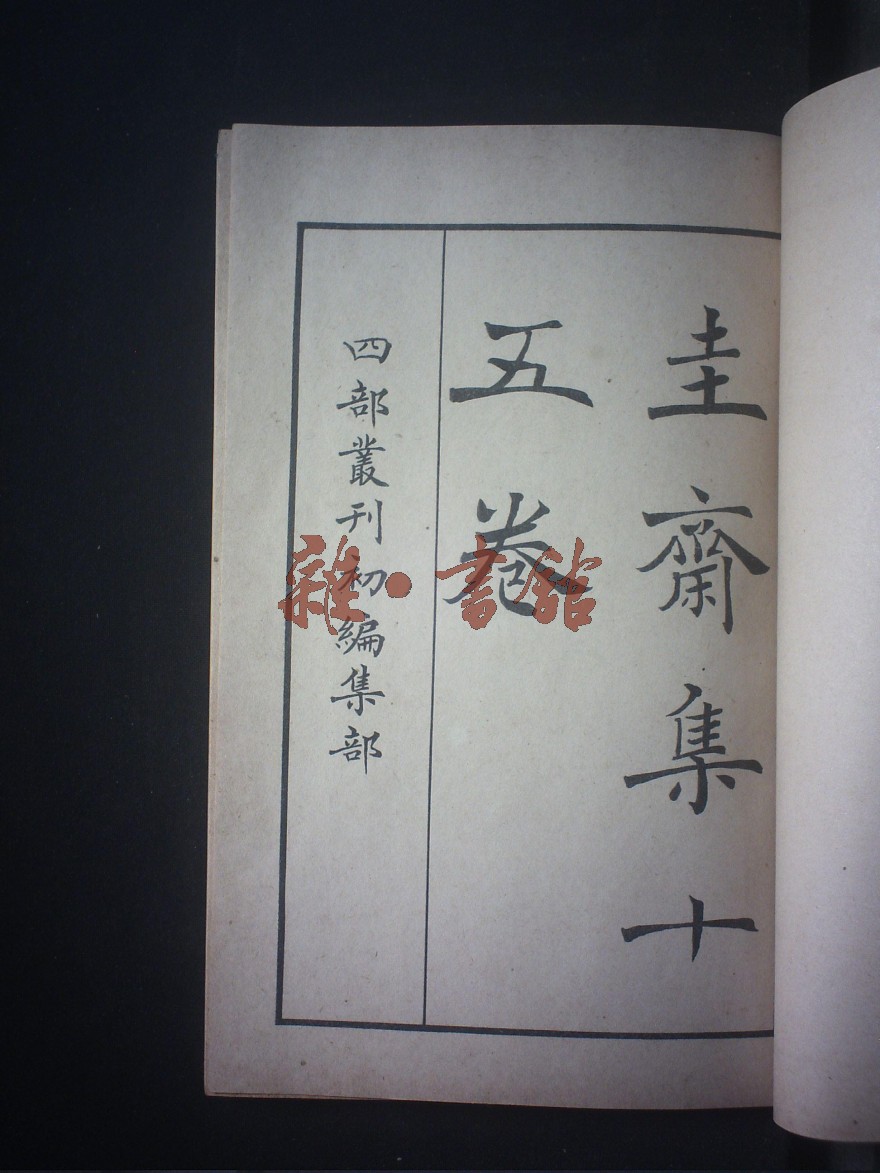 圭齋集十
五卷
四部叢刊初編集部
雜·書館